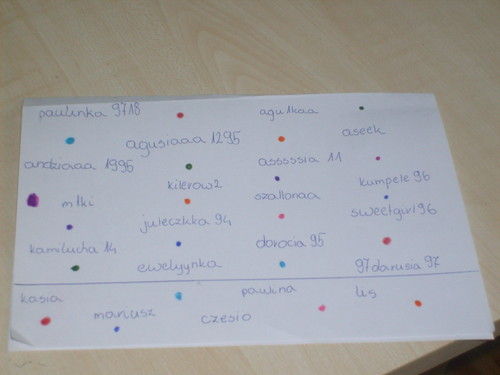 paulinka 9718
agu1kaa
agusiaaa 1295
aseek
andziaaa 1996
assssia 11
kilerow2
kumpele 96
mlki
szallonaa
juleczkka 94
sweetgirl96
kamilucha 14
dorocia 95
ewelyynka
97darusia 97
kasia
paulina
lis
mariusz
czesio